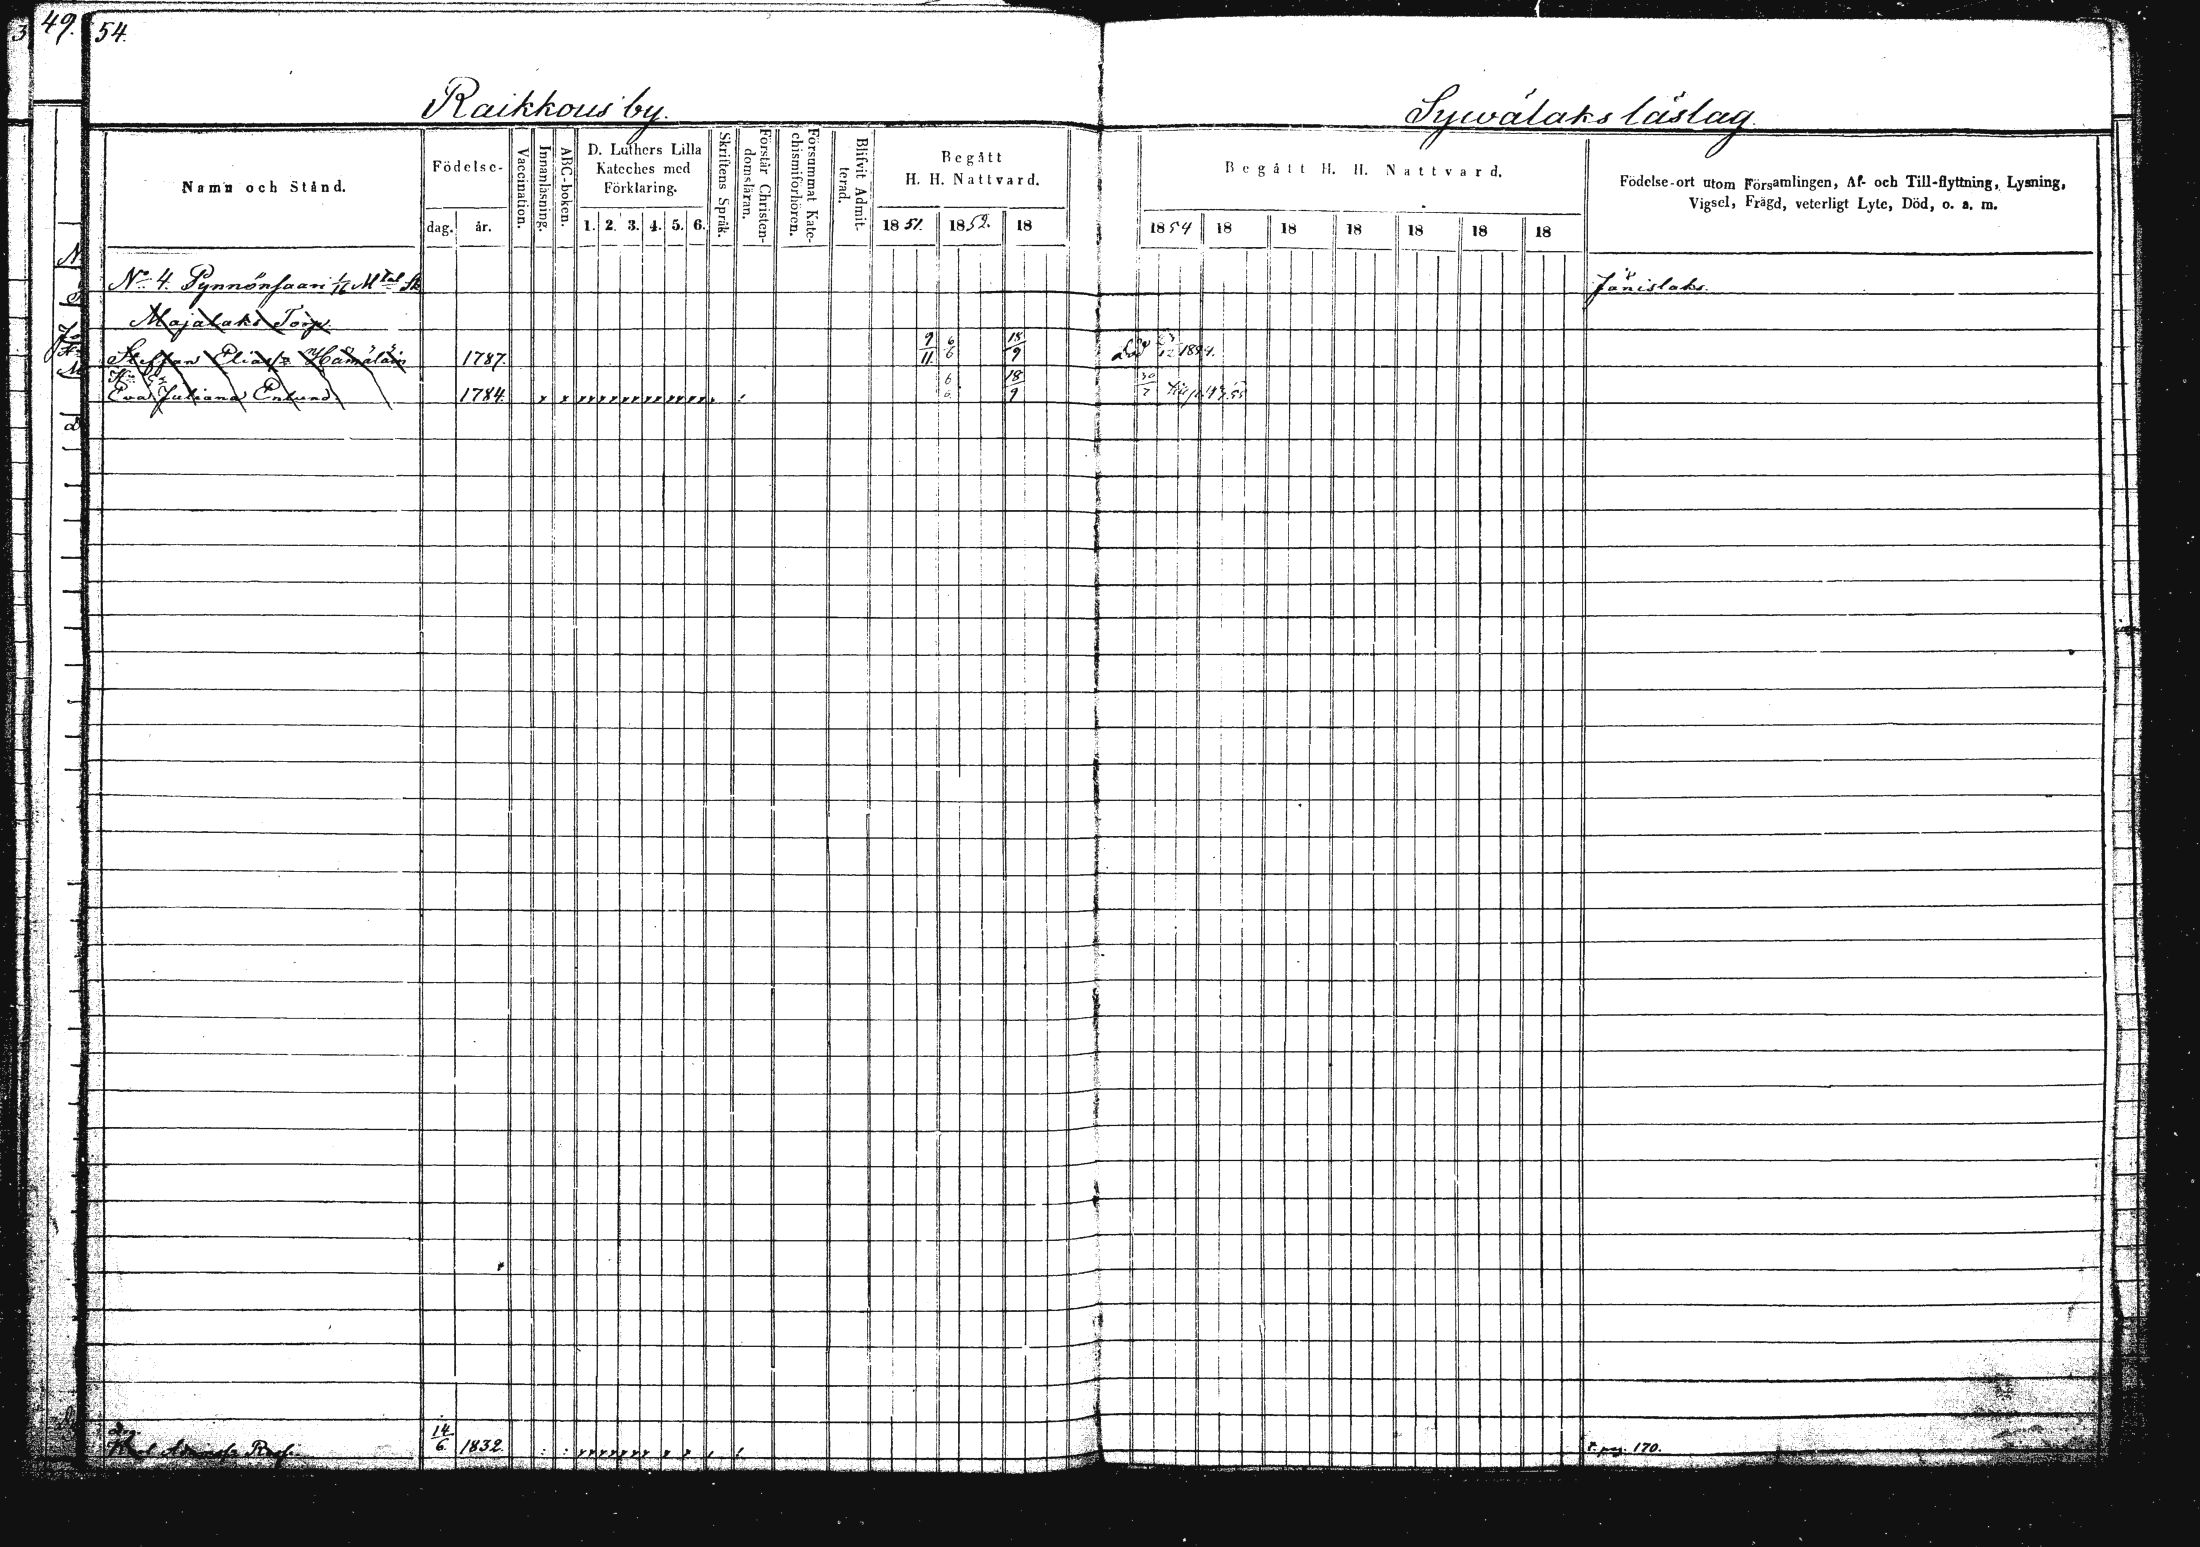 49. 54.
Raikkous by.
Sywälaks läslag.
Namn och Stånd.
Födelse-
dag. år.
Vaccination.
Innanläsning.
ABC-boken.
D. Luthers Lilla
Kateches med
Förklaring.
1. 2. 3. 4. 5. 6.
Skriftens Språk.
Förstår Christen-
domsläran.
Försummat Kate-
chismiförhören.
Blifvit Admit-
terad.
Begått
H. H. Nattvard.
1851. 1852. 18
Begått H. H. Nattvard.
1854 18 18 18 18 18 18
Födelse-ort utom Församlingen, Af- och Till-flyttning, Lysning,
Vigsel, Frägd, veterligt Lyte, Död, o. s. m.
No 4. Pynnönsaari 1/16 Mtal Sk
Jänislaks.
Majalaks Torp.
Steffan Eliass. Hämäläin 1787. 9/11. 6/6 18/9 Död 1854.
Eva Juliana Enlund 1784. 6/6 18/9 30/7
14/6. 1832. pag. 170.